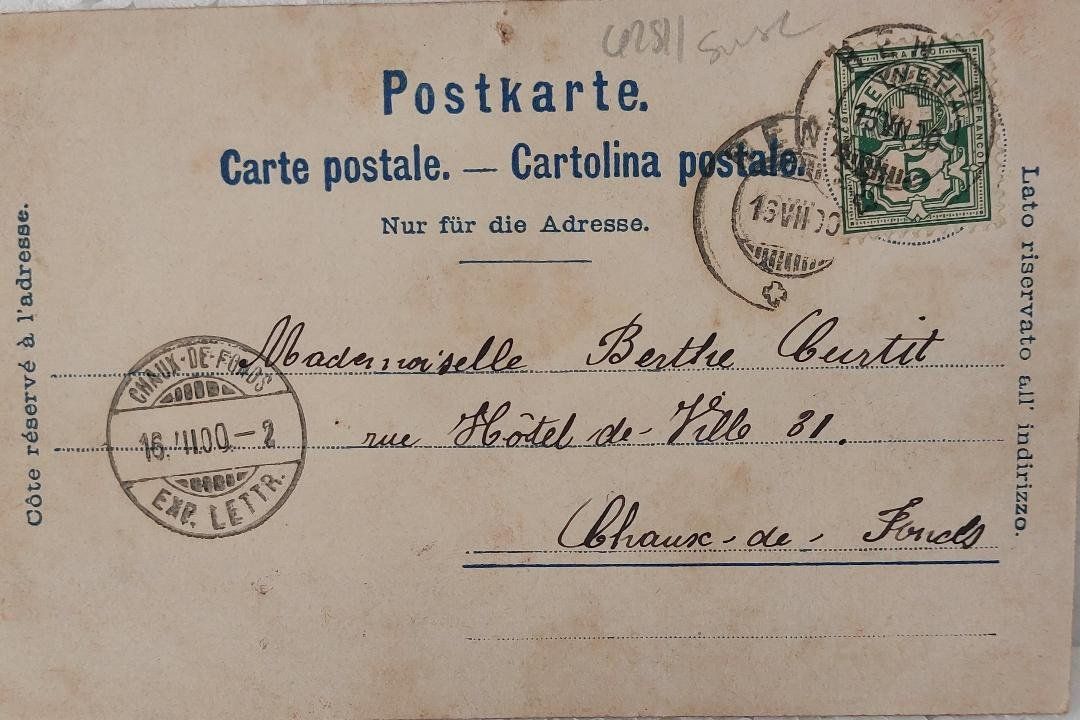 Postkarte.
Carte postale. — Cartolina postale.
Nur für die Adresse.
Côte réservé à l'adresse.
Lato riservato all' indirizzo.
HELVETIA
FRANCO
5
16 VII 00
CHAUX-DE-FONDS
16. VII.00.-2
EXP. LETTR.
Mademoiselle Berthe Curtit
rue Hôtel de-Ville 31.
Chaux-de-Fonds